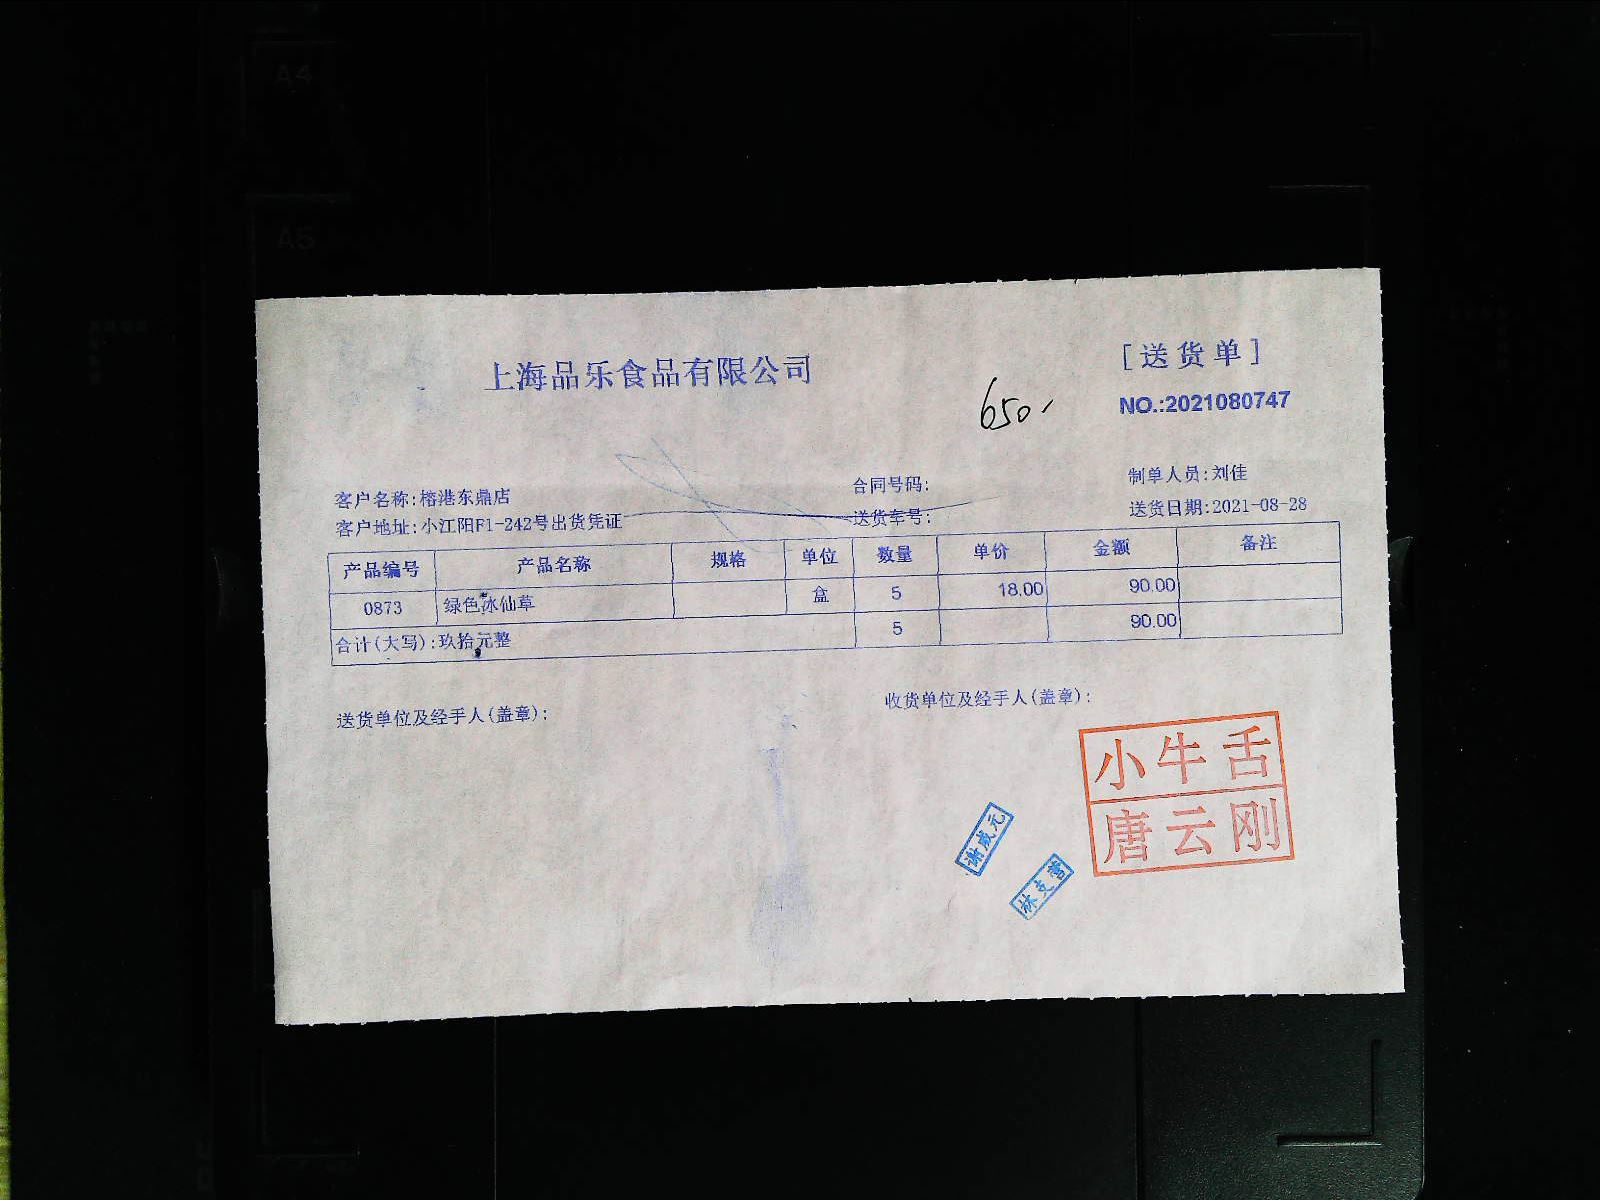 A4
A5
上海品乐食品有限公司
[送货单]
650.-
NO.:2021080747
客户名称:榕港东鼎店
合同号码:
制单人员:刘佳
客户地址:小江阳F1-242号出货凭证
送货车号:
送货日期:2021-08-28
产品编号 产品名称 规格 单位 数量 单价 金额 备注
0873 绿色冰仙草 盒 5 18.00 90.00
合计(大写):玖拾元整 5 90.00
送货单位及经手人(盖章):
收货单位及经手人(盖章):
小牛舌
唐云刚
谢成元